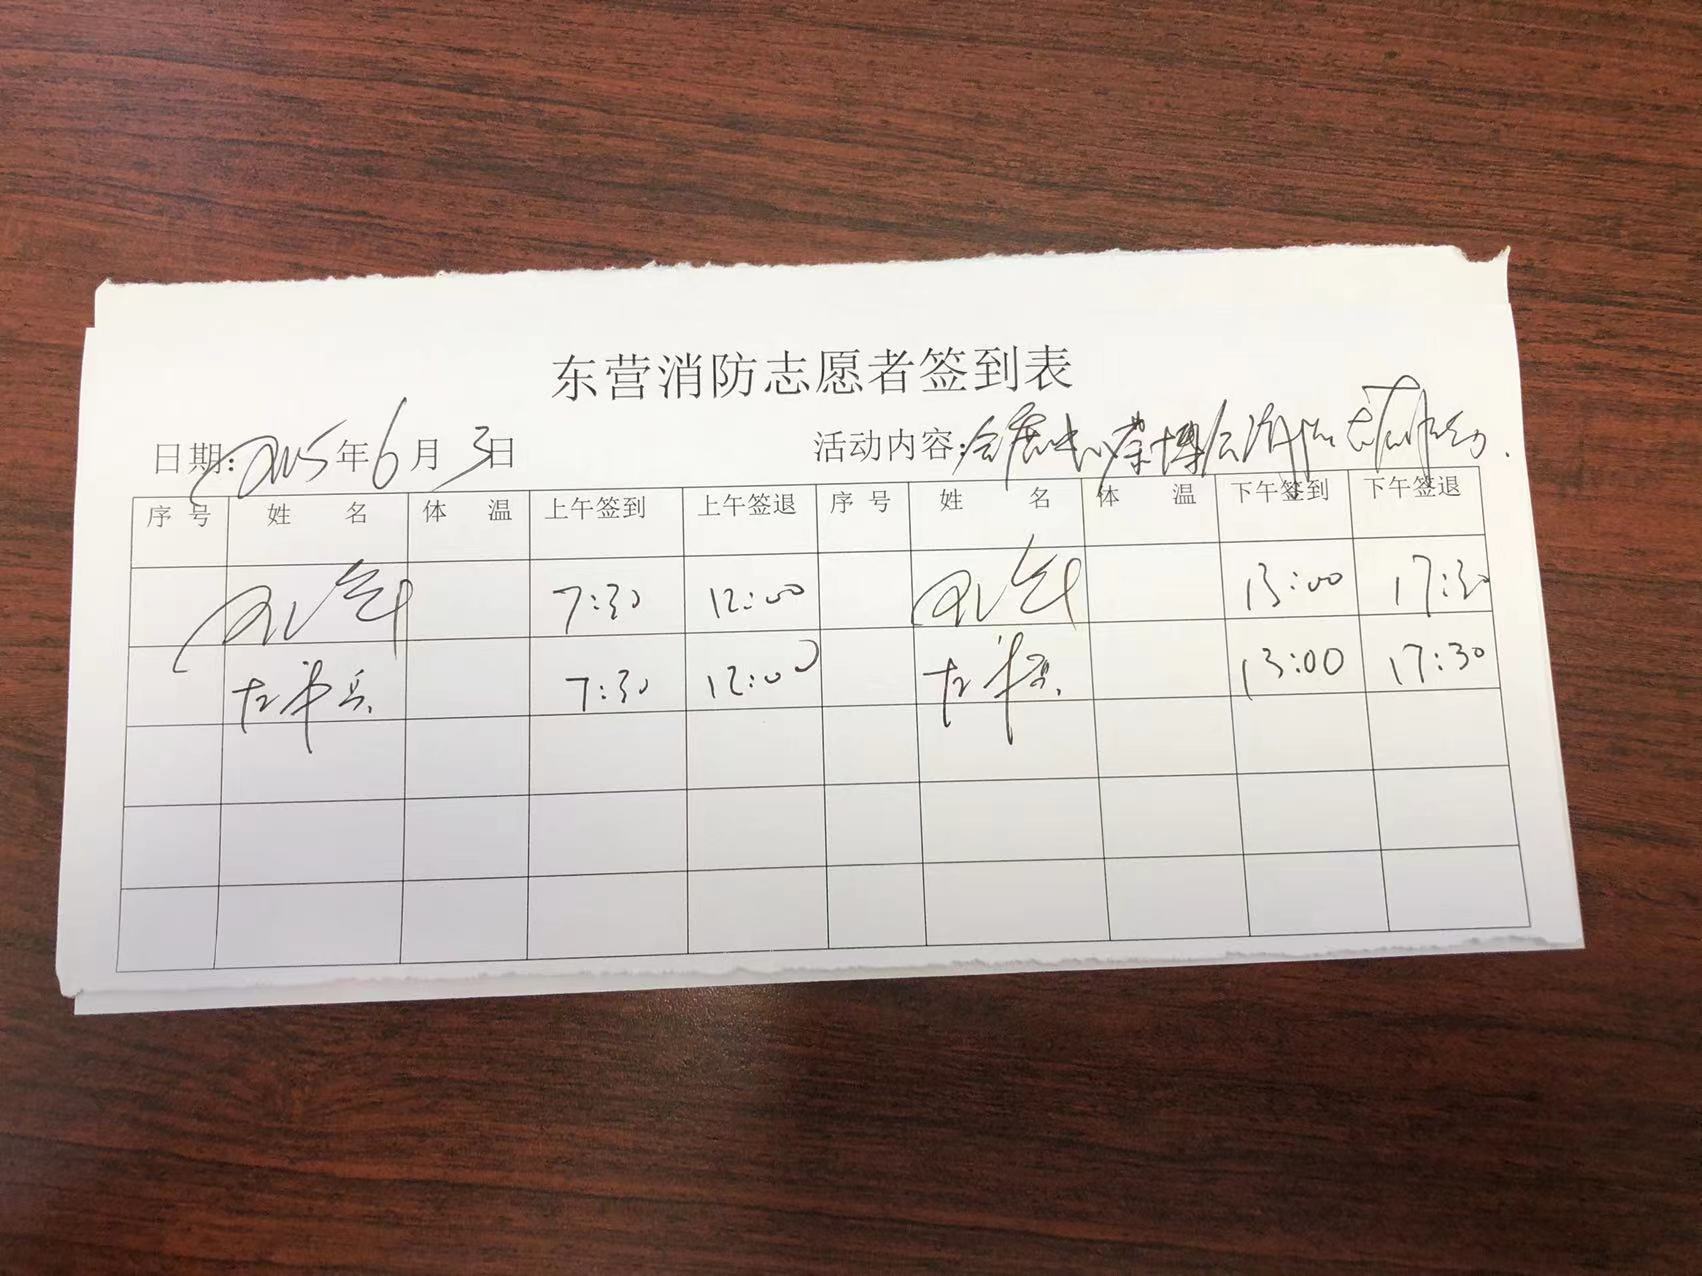 东营消防志愿者签到表
日期: 2025年6月3日 活动内容: 会展中心茶博会消防志愿活动.
序号 姓名 体温 上午签到 上午签退 序号 姓名 体温 下午签到 下午签退
7:30 12:00 13:00 17:30
左兵 7:30 12:00 左 13:00 17:30